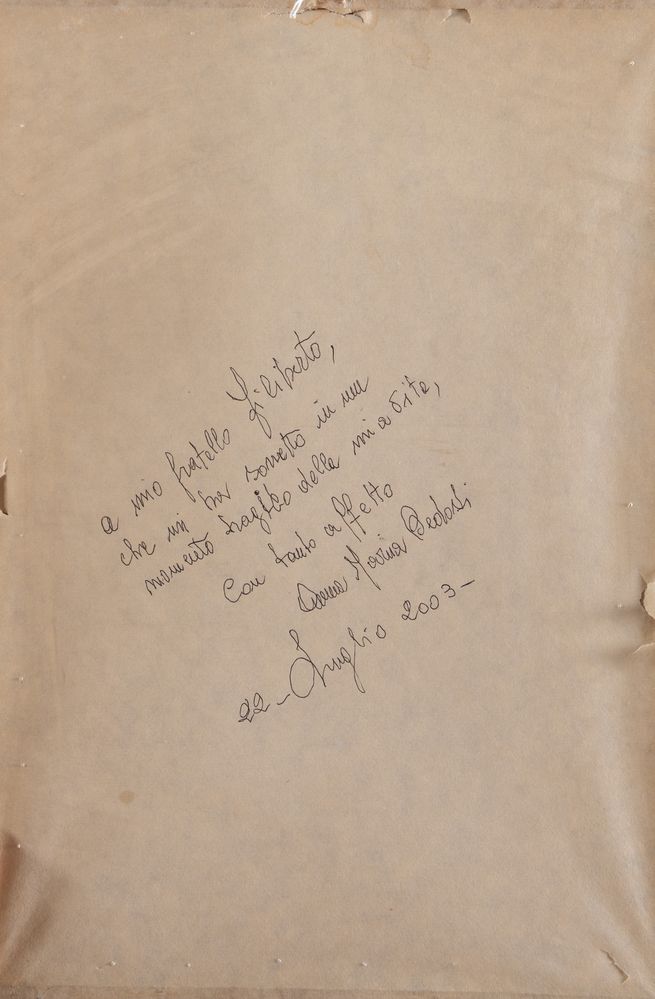 a mio fratello Filiberto,
che mi ha sorretto in un
momento tragico della mia vita,
Con tanto affetto
Anna Maria
22 - Luglio 2003 -